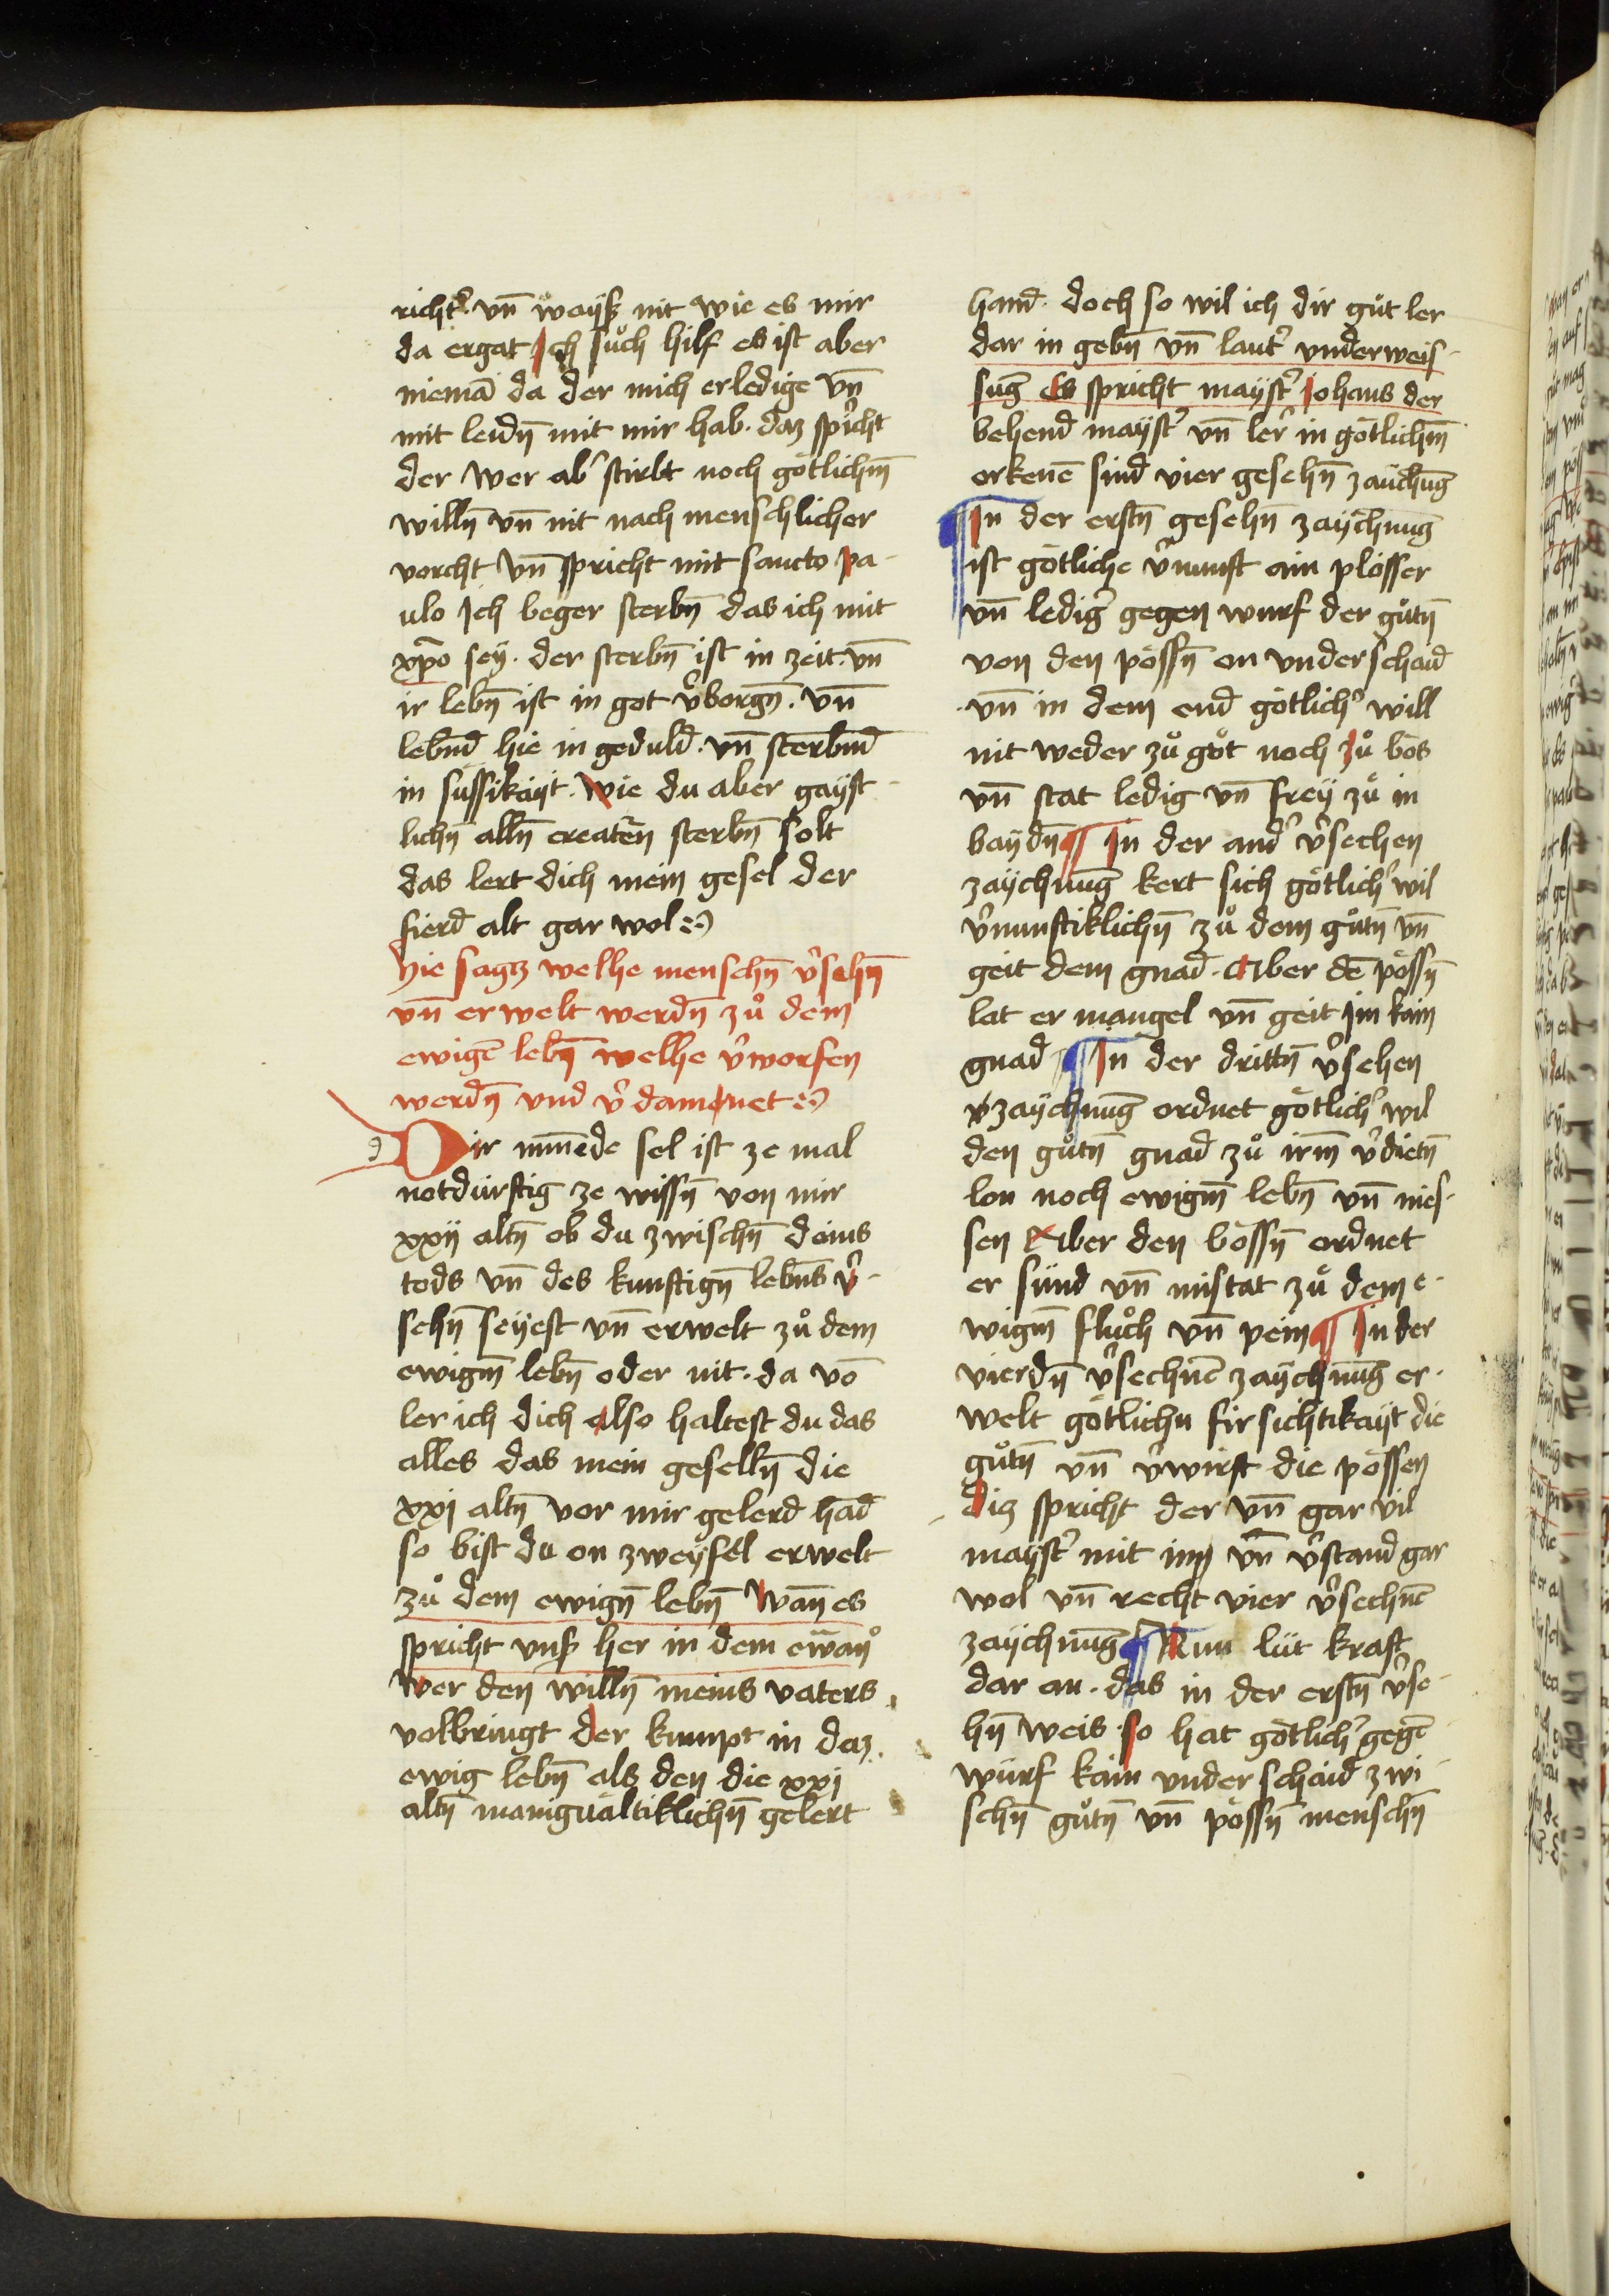 richt᷑ vn̄ wayß nit wie es mir
da ergat Ich sůch hilf es ist aber
niemā da der mich erledige vn̄
mit leidn̄ mit mir hab· daz spricht
der wer ab᷑ stirbt noch götlichm̄
willn̄ vn̄ nit nach menschlicher
vorcht vn̄ spricht mit sancto pa-
ulo Ich beger sterbn̄ das ich mit
xp̄o sey· der sterbn̄ ist in zeit· vn̄
ir lebn̄ ist in got v᷑borgn̄· vn̄
lebn̄d hie in geduld· vn̄ sterbn̄d
in süssikayt· wie du aber gayst
lichn̄ alln̄ creatēn sterbn̄ solt
das lert dich mein gesel der
fierd alt gar wol
Hie sagtz welhe menschn̄ v᷑sehn̄
vn̄ erwelt werdn̄ zů dem
ewigē lebn̄ welhe v᷑worfen
werdn̄ und v᷑damnet
d
Dir minēde sel ist ze mal
notdürftig ze wissn̄ von mir
xxij altn̄ ob du zwischn̄ deins
tods vn̄ des kunftign̄ lebn̄s v᷑-
sehn̄ seyest vn̄ erwelt zů dem
ewigm̄ lebn̄ oder nit· da vō
ler ich dich also haltest du das
alles das mein geselln̄ die
xxj altn̄ vor mir gelerd had
so bist du on zweyfel erwelt
zů dem ewign̄ lebn̄ Wan̄ es
spricht vnß her in dem ewan᷑
Wer den willn̄ meins vaters
volbringt der kumpt in daz
ewig lebn̄ als den die xxj
altn̄ manigualtiklichn̄ gelert
hand· doch so wil ich dir gůt ler
dar in gebn̄ vn̄ laut᷑ underweis-
sūg Es spricht mayst᷑ Johans der
behend mayst᷑ vn̄ ler᷑ in götlichm̄
erkenē sind vier gesehn̄ zaichūg
¶ In der erstn̄ gesehn̄ zaychnūg
ist götliche v᷑nunft ain plosser
vn̄ ledig᷑ gegen wurf der gůtn̄
von den pössn̄ on underschaid
vn̄ in dem end götlich᷑ will
nit weder zů gůt noch zů bös
vn̄ stat ledig vn̄ frey zů in
baydn̄ ¶ In der and᷑ v᷑sechen
zaychnūg kert sich götlich᷑ wil
v᷑nunftiklichn̄ zů dem gůtn̄ vn̄
geit dem gnad· Aber dē pössn̄
lat er mangel vn̄ geit im kain
gnad ¶ In der drittn̄ v᷑sehen
zaychnūg ordnet götlich᷑ wil
den gůtn̄ gnad zů irm̄ v᷑dietn̄
lon noch ewigm̄ lebn̄ vn̄ nies-
sen Aber den bössn̄ ordnet
er sünd vn̄ mistat zů dem e-
wigm̄ flůch vn̄ pein ¶ In der
vierdn̄ v᷑sechnē zaychnūg er-
welt götlichu fir sichtikayt die
gůtn̄ vn̄ v᷑wirft die pössen
diz spricht der vn̄ gar vil
mayst᷑ mit im vn̄ v᷑stand gar
wol vn̄ recht vier v᷑sechnē
zaychnūg ¶ Nun lüt kraft
dar an· das in der erstn̄ v᷑se-
hn̄ weis· so hat götlich᷑ gegē
würf kain underschaid zwi
schn̄ gůtn̄ vn̄ pössn̄ menschn̄